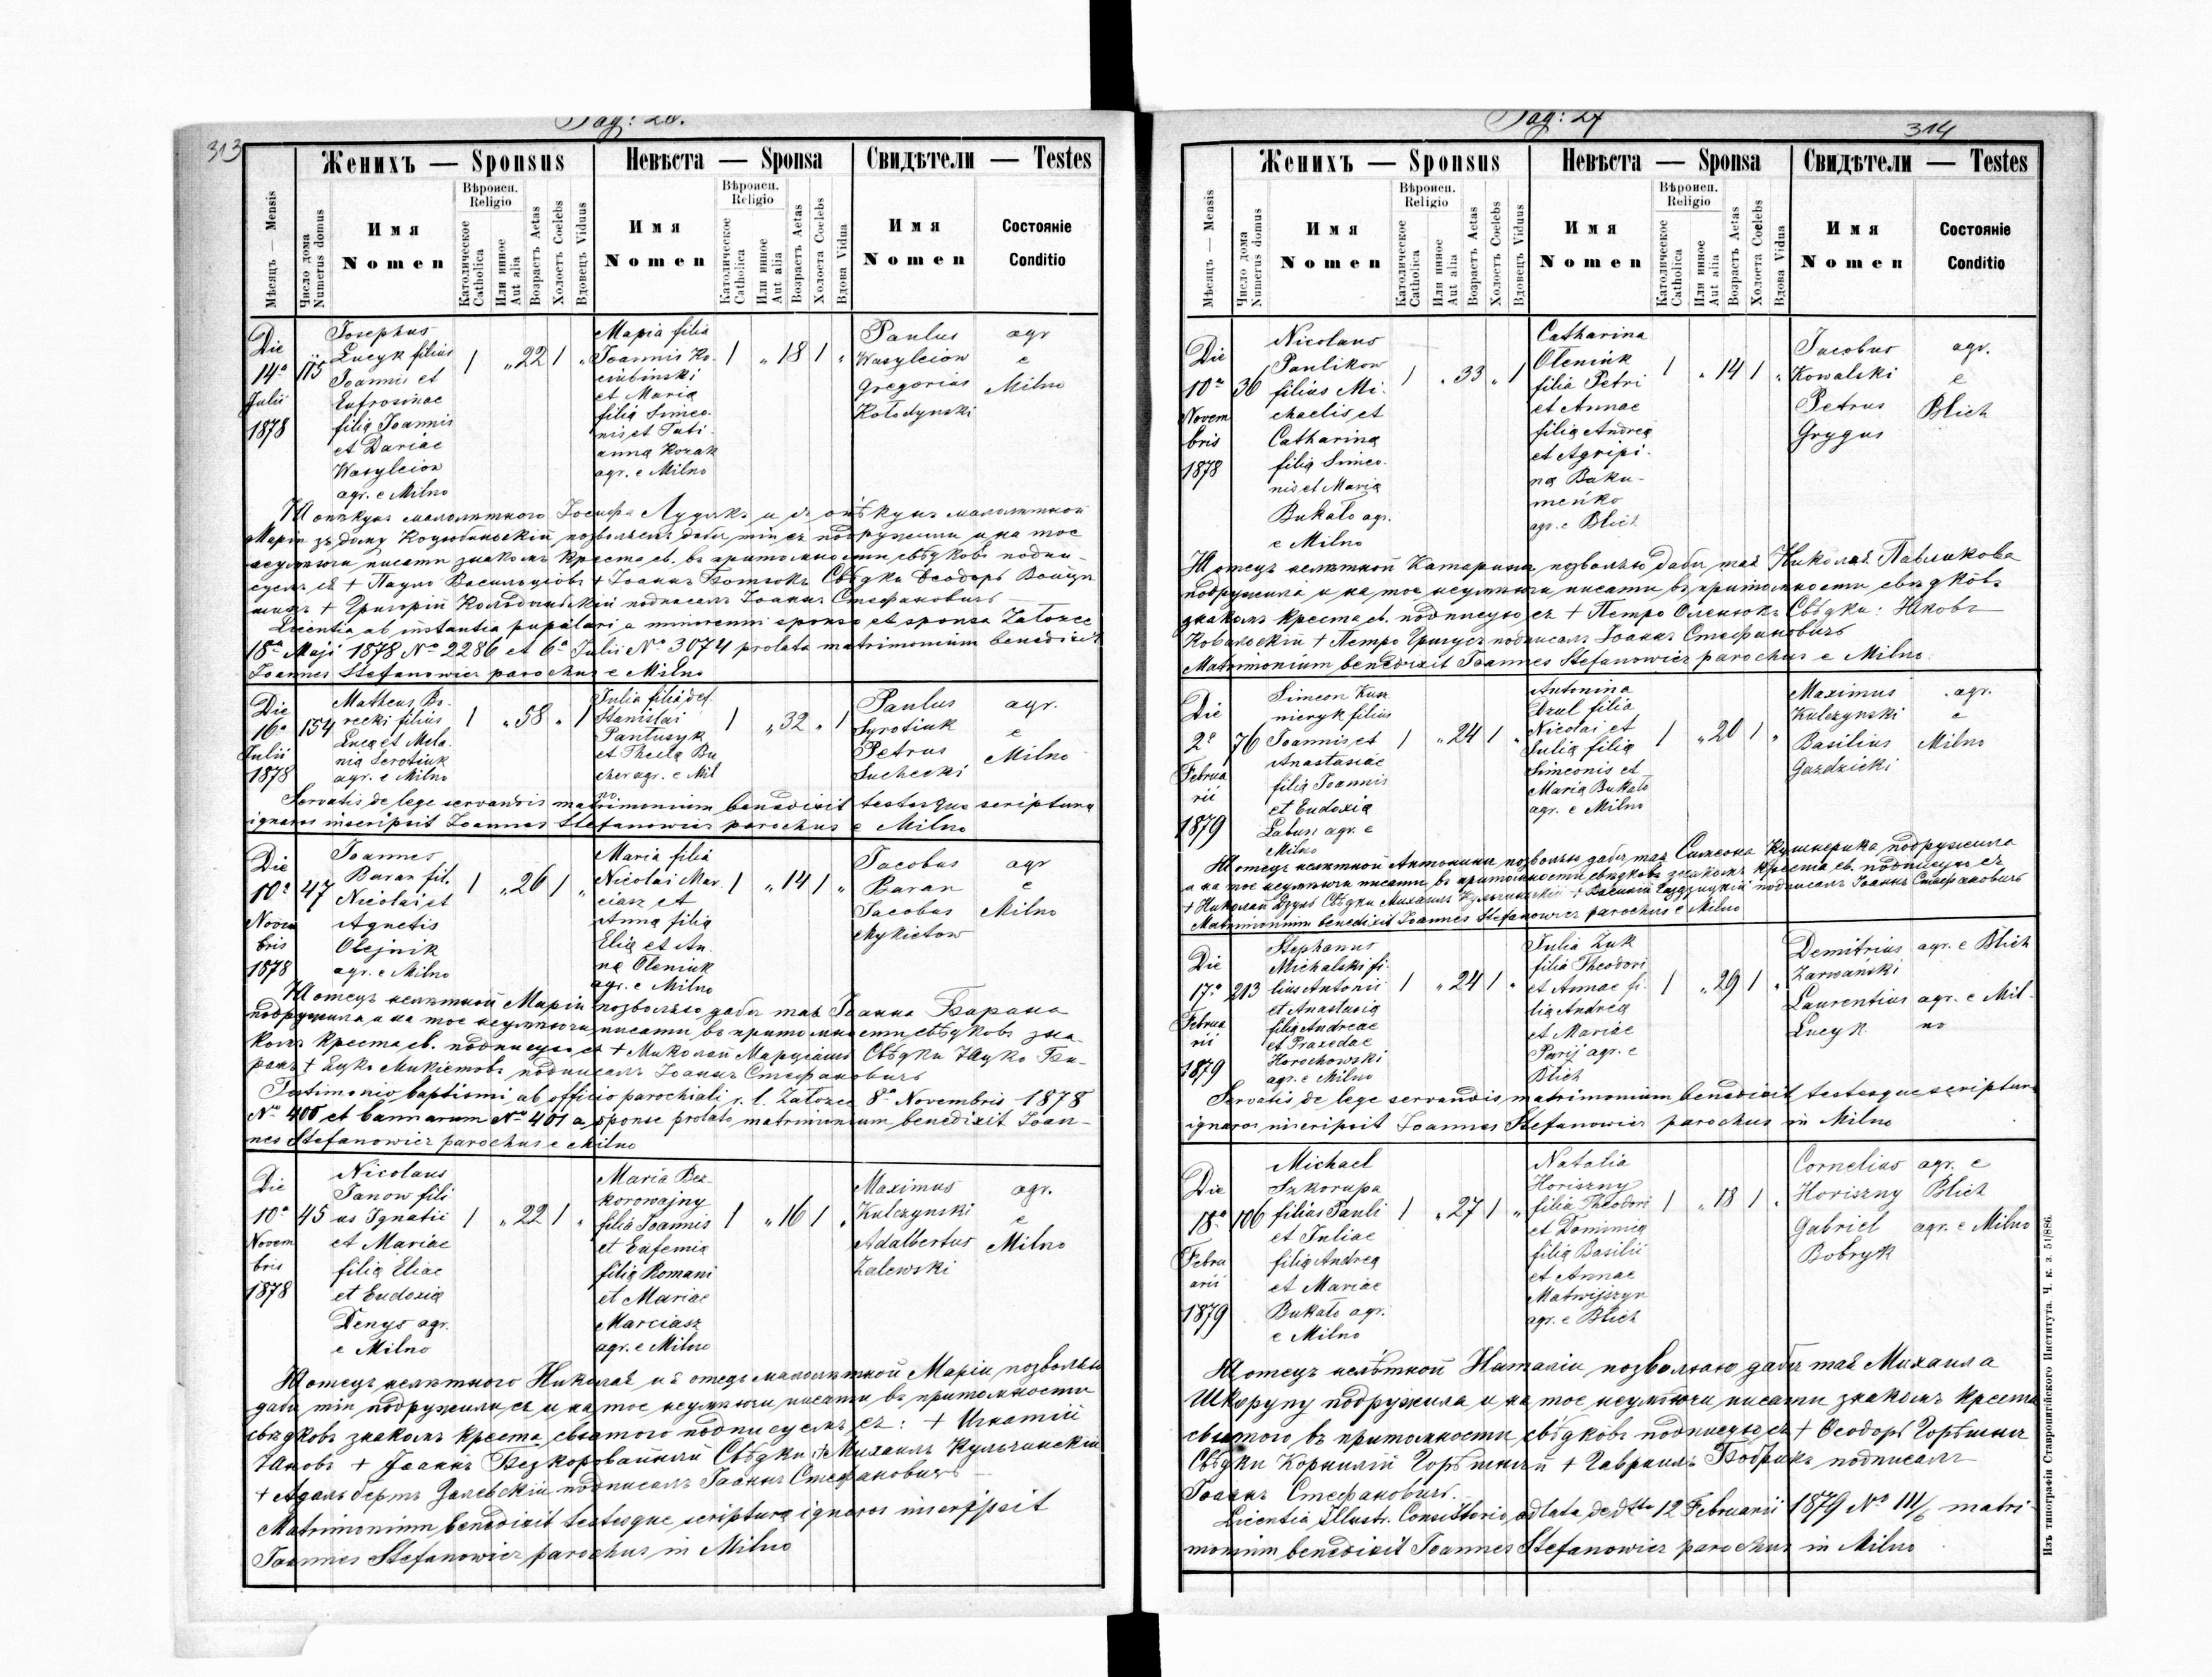 313
Pag: 26.
Женихъ — Sponsus
Невѣста — Sponsa
Свидѣтели — Testes
Мѣсяцъ — Mensis
Число дома
Numerus domus
Имя
Nomen
Вѣроисп.
Religio
Католическое
Catholica
Или инное
Aut alia
Возрастъ Aetas
Холостъ Coelebs
Вдовецъ Viduus
Имя
Nomen
Вѣроисп.
Religio
Католическое
Catholica
Или инное
Aut alia
Возрастъ Aetas
Холоста Coelebs
Вдова Vidua
Имя
Nomen
Состояніе
Conditio
Die
14a
Julii
1878
115
Josephus
Lucyk filius
Joannis et
Eufrosinae
filia Joannis
et Dariae
Wasylciow
agr. e Milno
1 „ 22 1 „
Maria filia
Joannis Ko-
ciubinski
et Maria
filia Simeo-
nis et Tati-
anna Kozak
agr. e Milno
1 „ 18 1 „
Paulus
Wasylciow
Gregorius
Kołodynski
agr
e
Milno
Я опѣкунъ малолѣтного Іосифа Луцыкъ и я опѣкунъ малолѣтной
Маріи зъ дому Коцюбиньскій позволяемъ дабы тіи ся подружили и на тое
неумѣючи писати знакомъ креста св. въ притомности свѣдковъ подпи-
суемъ ся + Павло Васильцювъ + Іоаннъ Свѣдки Ѳеодоръ
+ Григорій подписалъ Іоаннъ Стефановичъ
Licentia ab instantia pupilari a minorenni sponso et sponsa Załozce
18a Maji 1878 No 2286 et 6a Julii No 3074 prolata matrimonium benedixit
Joannes Stefanowicz parochus e Milno
Die
16a
Julii
1878
154
Matheus Bo-
recki filius
Luca et Mela-
nia Serotiuk
agr. e Milno
1 „ 58 „ 1
Julia filia def.
Stanislai
Pantusyk
et Thecla Bu
cher agr. e Mil
no
1 „ 32 „ 1
Paulus
Syrotiuk
Petrus
Suchecki
agr.
e
Milno
Servatis de lege servandis matrimonium benedixit testesque scriptura
ignaros inscripsit Joannes Stefanowicz parochus e Milno
Die
10a
Novem
bris
1878
47
Joannes
Baran fil.
Nicolai et
Agnetis
Olejnik
agr. e Milno
1 „ 26 1 „
Maria filia
Nicolai Mar-
ciasz et
Anna filia
Elia et An-
na Oleniuk
agr. e Milno
1 „ 14 1 „
Jacobus
Baran
Jacobus
Mykietow
agr
e
Milno
Я отецъ нелѣтной Маріи позволяю дабы тая Іоанна Барана
подружила и на тое неумѣючи писати въ притомности свѣдковъ зна-
комъ креста св. подписую ся + Миколай Марціашъ Свѣдки Яцко Ба-
ранъ + Яцко Микіетовъ подписалъ Іоаннъ Стефановичъ
Testimonio baptismi ab officio parochiali r. l. Załozce 8a Novembris 1878
No 400 et bannorum No 401 a sponse prolato matrimonium benedixit Joan-
nes Stefanowicz parochus e Milno
Die
10a
Novem
bris
1878
45
Nicolaus
Janow fili
us Ignatii
et Mariae
filia Eliae
et Eudoxia
Denys agr.
e Milno
1 „ 22 1 „
Maria Bez-
korowajny
filia Joannis
et Eufemia
filia Romani
et Mariae
Marciasz
agr. e Milno
1 „ 16 1 „
Maximus
Kulczynski
Adalbertus
Zalewski
agr.
e
Milno
Я отецъ нелѣтного Николая и я отецъ малолѣтной Маріи позволяю
дабы тіи подружили ся и на тое неумѣючи писати въ притомности
свѣдковъ знакомъ креста святого подписуемъ ся: + Игнатій
Яновъ + Іоаннъ Безкоровайный Свѣдки: + Михаилъ Кульчинскій
+ Адальбертъ Залевскій подписалъ Іоаннъ Стефановичъ
Matrimonium benedixit testesque scriptura ignaros inscripsit
Joannes Stefanowicz parochus in Milno
Pag: 27
314
Женихъ — Sponsus
Невѣста — Sponsa
Свидѣтели — Testes
Мѣсяцъ — Mensis
Число дома
Numerus domus
Имя
Nomen
Вѣроисп.
Religio
Католическое
Catholica
Или инное
Aut alia
Возрастъ Aetas
Холостъ Coelebs
Вдовецъ Viduus
Имя
Nomen
Вѣроисп.
Religio
Католическое
Catholica
Или инное
Aut alia
Возрастъ Aetas
Холоста Coelebs
Вдова Vidua
Имя
Nomen
Состояніе
Conditio
Die
10a
Novem
bris
1878
36
Nicolaus
Paulikow
filius Mi-
chaelis et
Catharina
filia Simeo-
nis et Maria
Bukało agr.
e Milno
1 „ 33 „ 1
Catharina
Oleniuk
filia Petri
et Annae
filia Andrea
et Agripi-
na Baku-
menko
agr. e Blich
1 „ 14 1 „
Jacobus
Kowalski
Petrus
Grygus
agr.
e
Blich
Я отецъ нелѣтной Катарини позволяю дабы тая Николая Павликова
подружила и на тое неумѣючи писати въ притомности свѣдковъ
знакомъ креста св. подписую ся + Петро Оленюкъ Свѣдки: Яковъ
Ковальскій + Петро Григусъ подписалъ Іоаннъ Стефановичъ
Matrimonium benedixit Joannes Stefanowicz parochus e Milno
Die
2a
Februa
rii
1879
76
Simeon Kusz
nieryk filius
Joannis et
Anastasiae
filia Joannis
et Eudoxia
Łabun agr. e
Milno
1 „ 24 1 „
Antonina
Dzul filia
Nicolai et
Julia filia
Simeonis et
Maria Bukało
agr. e Milno
1 „ 20 1 „
Maximus
Kulczynski
Basilius
Gazdzicki
agr.
e
Milno
Я отецъ нелѣтной Антонины позволяю дабы тая Симеона Кушнерика подружила
и на тое неумѣючи писати въ притомности свѣдковъ знакомъ креста св. подписую ся
+ Николай Дзулъ Свѣдки Михаилъ Кульчинскій + Василій Газдзицкій подписалъ Іоаннъ Стефановичъ
Matrimonium benedixit Joannes Stefanowicz parochus e Milno
Die
17a
Februa
rii
1879
213
Stephanus
Michalski fi-
lius Antonii
et Anastasia
filia Andreae
et Praxedae
Horochowski
agr. e Milno
1 „ 24 1 „
Julia Zuk
filia Theodori
et Annae fi-
lia Andrea
et Mariae
Parij agr. e
Blich
1 „ 29 1 „
Demitrius
Zarwanski
Laurentius
Lucyk
agr. e Blich
agr. e Mil-
no
Servatis de lege servandis matrimonium benedixit testesque scriptura
ignaros inscripsit Joannes Stefanowicz parochus in Milno
Die
18a
Febru
arii
1879
106
Michael
Szkorupa
filius Pauli
et Juliae
filia Andrea
et Mariae
Bukało agr.
e Milno
1 „ 27 1 „
Natalia
Horiszny
filia Theodori
et Domimia
filia Basilii
et Annae
Matwijszyn
agr. e Blich
1 „ 18 1 „
Cornelius
Horiszny
Gabriel
Bobryk
agr. e
Blich
agr. e Milno
Я отецъ нелѣтной Наталіи позволяю дабы тая Михаила
Шкорупу подружила и на тое неумѣючи писати знакомъ креста
святого въ притомности свѣдковъ подписую ся + Ѳеодоръ Горѣшный
Свѣдки Корнилій Горѣшный + Гавриилъ Бобрикъ подписалъ
Іоаннъ Стефановичъ.
Licentia Illustr. Consistorio adlata de dto 12 Februarii 1879 No III/6 matri-
monium benedixit Joannes Stefanowicz parochus in Milno
Изъ типографіи Ставропигійского Института. Ч. к. з. 51/886.